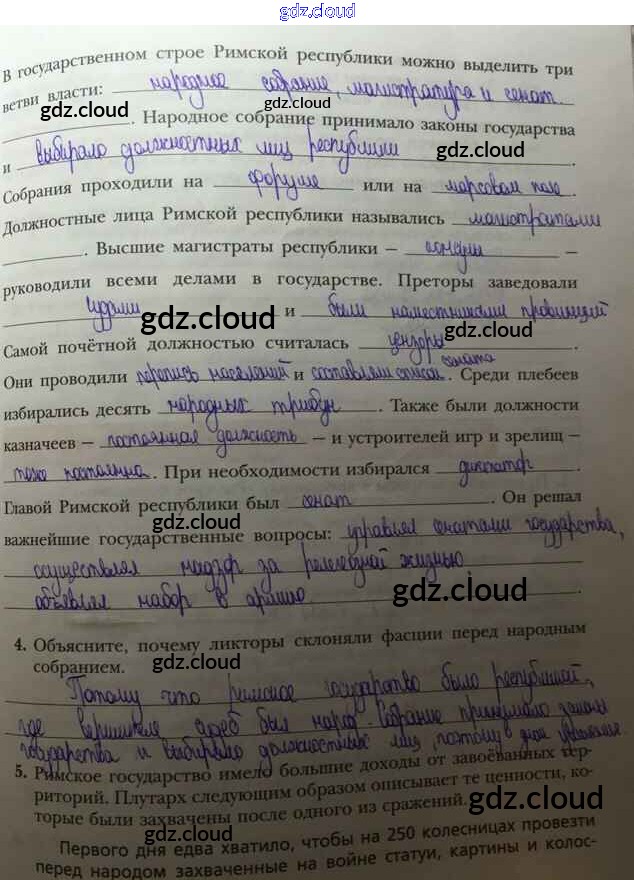 gdz.cloud
В государственном строе Римской республики можно выделить три
ветви власти: народное собрание, магистратура и сенат
gdz.cloud gdz.cloud
. Народное собрание принимало законы государства
и выбирало должностных лиц республики .
gdz.cloud gdz.cloud
Собрания проходили на форуме или на марсовом поле.
Должностные лица Римской республики назывались магистратами
. Высшие магистраты республики – консулы –
руководили всеми делами в государстве. Преторы заведовали
судами и были наместниками провинций
gdz.cloud gdz.cloud
Самой почётной должностью считалась цензоры .
Они проводили перепись населений и составляли список сената. Среди плебеев
избирались десять народных трибун . Также были должности
казначеев – постоянная должность – и устроителей игр и зрелищ –
тоже постоянна . При необходимости избирался диктатор .
gdz.cloud gdz.cloud
Главой Римской республики был сенат . Он решал
gdz.cloud gdz.cloud
важнейшие государственные вопросы: управлял сенатами государства,
осуществлял надзор за религиозной жизнью
объявлял набор в армию
gdz.cloud gdz.cloud
4. Объясните, почему ликторы склоняли фасции перед народным
собранием.
gdz.cloud
Потому что римское государство было республикой,
где вершителем судеб был народ. Собрание принимало законы
государства и выбирало должностных лиц, поэтому уважение
5. Римское государство имело большие доходы от завоёванных тер-
риторий. Плутарх следующим образом описывает те ценности, ко-
торые были захвачены после одного из сражений.
gdz.cloud gdz.cloud
Первого дня едва хватило, чтобы на 250 колесницах провезти
перед народом захваченные на войне статуи, картины и колос-